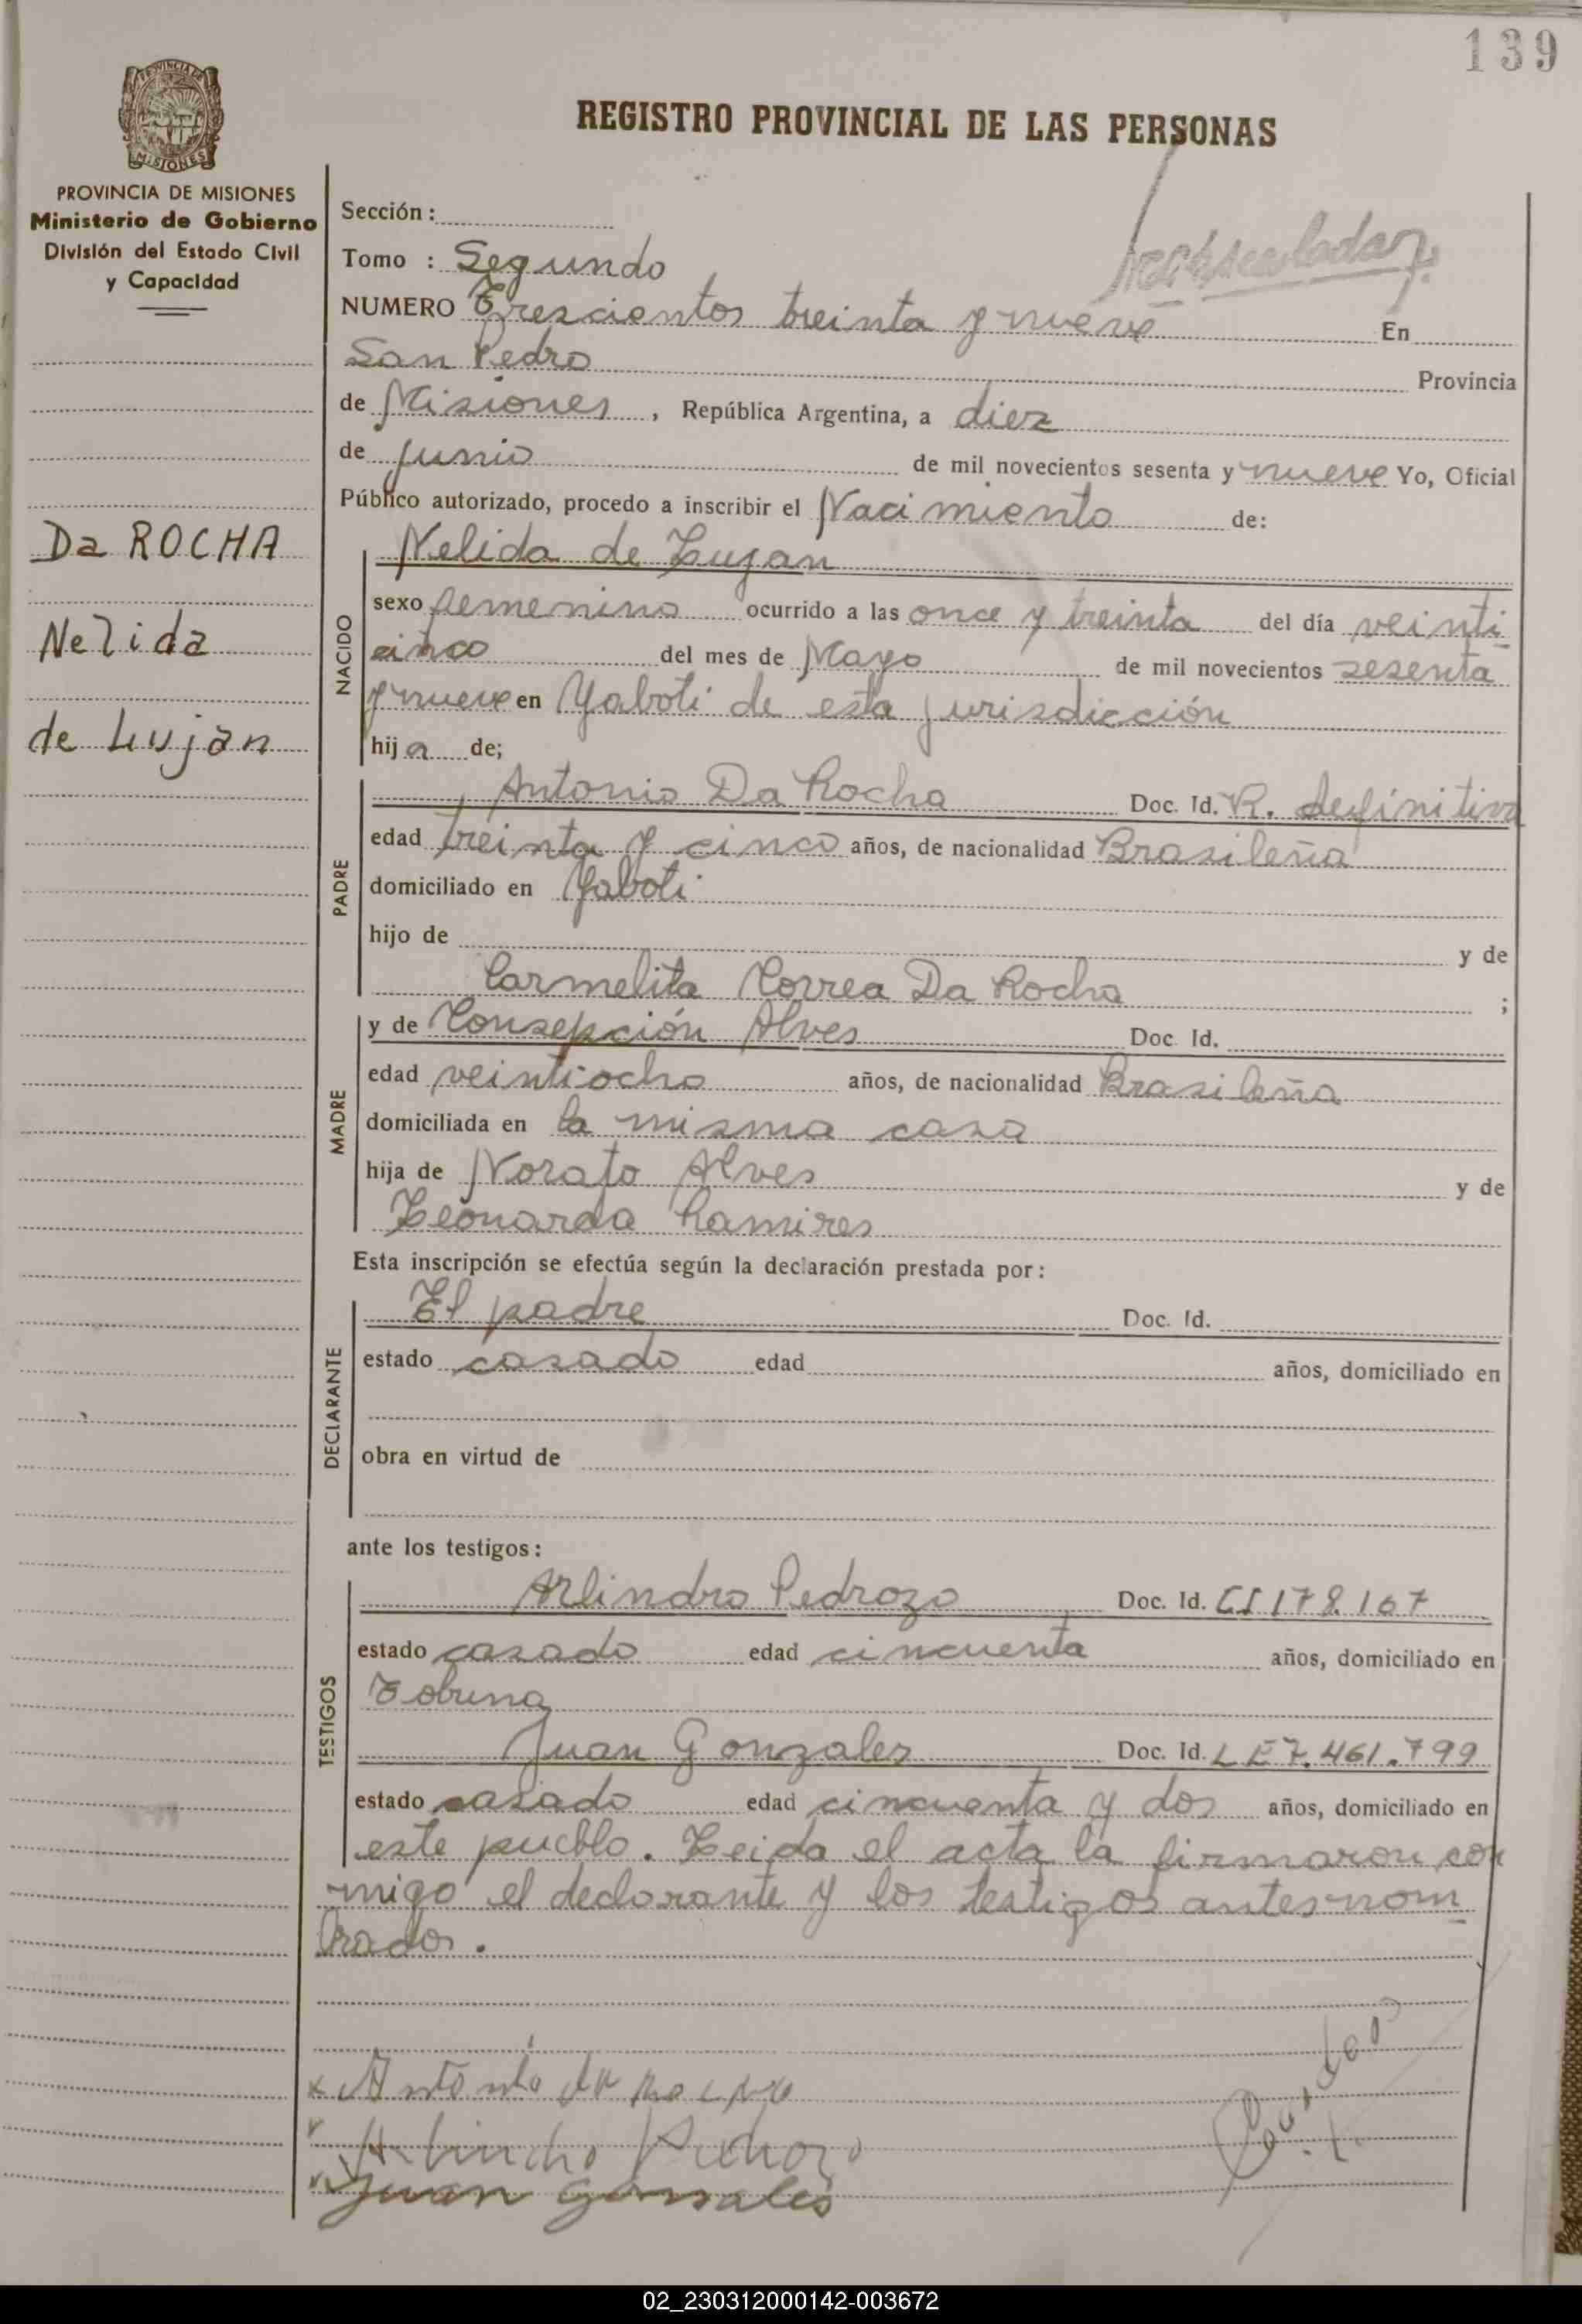 139
PROVINCIA DE
MISIONES
PROVINCIA DE MISIONES
Ministerio de Gobierno
División del Estado Civil
y Capacidad
REGISTRO PROVINCIAL DE LAS PERSONAS
Sección:
Tomo : Segundo
NUMERO Trescientos treinta y nueve En
San Pedro Provincia
de Misiones, República Argentina, a diez
de junio de mil novecientos sesenta y nueve Yo, Oficial
Público autorizado, procedo a inscribir el Nacimiento de:
Da ROCHA
Nelida
de Luján
NACIDO
Nelida de Lujan
sexo femenino ocurrido a las once y treinta del día veinti
cinco del mes de Mayo de mil novecientos sesenta
y nueve en Yaboti de esta jurisdicción
hija de;
PADRE
Antonio Da Rocha Doc. Id. R. definitiva
edad treinta y cinco años, de nacionalidad Brasileña
domiciliado en Yaboti
hijo de y de
Carmelita Correa Da Rocha ;
MADRE
y de Consepción Alves Doc Id.
edad veintiocho años, de nacionalidad Brasileña
domiciliada en la misma casa
hija de Norato Alves y de
Leonarda Ramires
Esta inscripción se efectúa según la declaración prestada por:
DECLARANTE
El padre Doc. Id.
estado casado edad años, domiciliado en
obra en virtud de
ante los testigos:
TESTIGOS
Arlindro Pedrozo Doc. Id. CI 178.167
estado casado edad cincuenta años, domiciliado en
Tobuna
Juan Gonzales Doc. Id. LE 7.461.799
estado casado edad cincuenta y dos años, domiciliado en
este pueblo. Leida el acta la firmaron con
migo el declarante y los testigos antes nom
brados.
x Antonio da rocha
Juan Gonsales
02_230312000142-003672